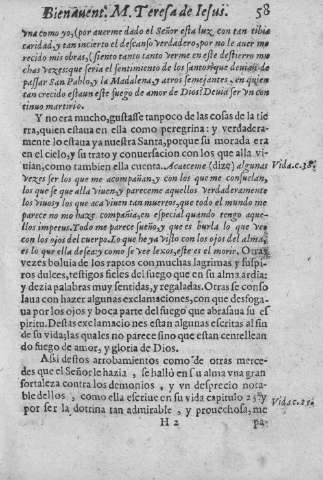 Bienauent. M. Teresa de Iesus. 58
vna como yo, (por auerme dado el Señor esta luz con tan tibia
caridad, y tan incierto el descanso verdadero, por no le auer me
recido mis obras, (siento tanto tanto verme en este destierro mu
chas vezes: que seria el sentimiento de los santos? que deuia de
passar San Pablo, y la Madalena, y otros semejantes, en quien
tan crecido estaua este fuego de amor de Dios? Deuia ser vn con
tinuo martirio.
Y no era mucho, gustasse tampoco de las cosas de la tie
rra, quien estaua en ella como peregrina: y verdadera-
mente lo estaua ya nuestra Santa, porque su morada era
en el cielo, y su trato y conuersacion con los que alla vi-
uian, como tambien ella cuenta. Acaeceme (dize) algunas
Vida. c. 38.
vezes ser los que me acompañan, y con los que me consuelan,
los que se que alla viuen, y pareceme aquellos verdaderamente
los viuos y los que aca viuen tan muertos, que todo el mundo me
parece no me haze compañia, en especial quando tengo aque-
llos impetus. Todo me parece sueño, y que es burla lo que veo
con los ojos del cuerpo. Lo que he ya visto con los ojos del alma,
es lo que ella dessea y como se vee lexos, este es el morir. Otras
vezes boluia de los raptos con muchas lagrimas y suspi-
ros dulces, testigos fieles del fuego que en su alma ardia;
y dezia palabras muy sentidas, y regaladas. Otras se conso
laua con hazer algunas exclamaciones, con que desfoga-
ua por los ojos y boca parte del fuego que abrasaua su es
piritu. Destas exclamaciones estan algunas escritas al fin
de su vida; las quales no parece sino que estan centellean
do fuego de amor, y gloria de Dios.
Assi destos arrobamientos como de otras merce-
des que el Señor le hazia, se halló en su alma vna gran
fortaleza contra los demonios, y vn desprecio nota-
ble dellos, como ella escriue en su vida capitulo 25. y
Vida. c. 25.
por ser la dotrina tan admirable, y prouechosa, me
H 2 pa-